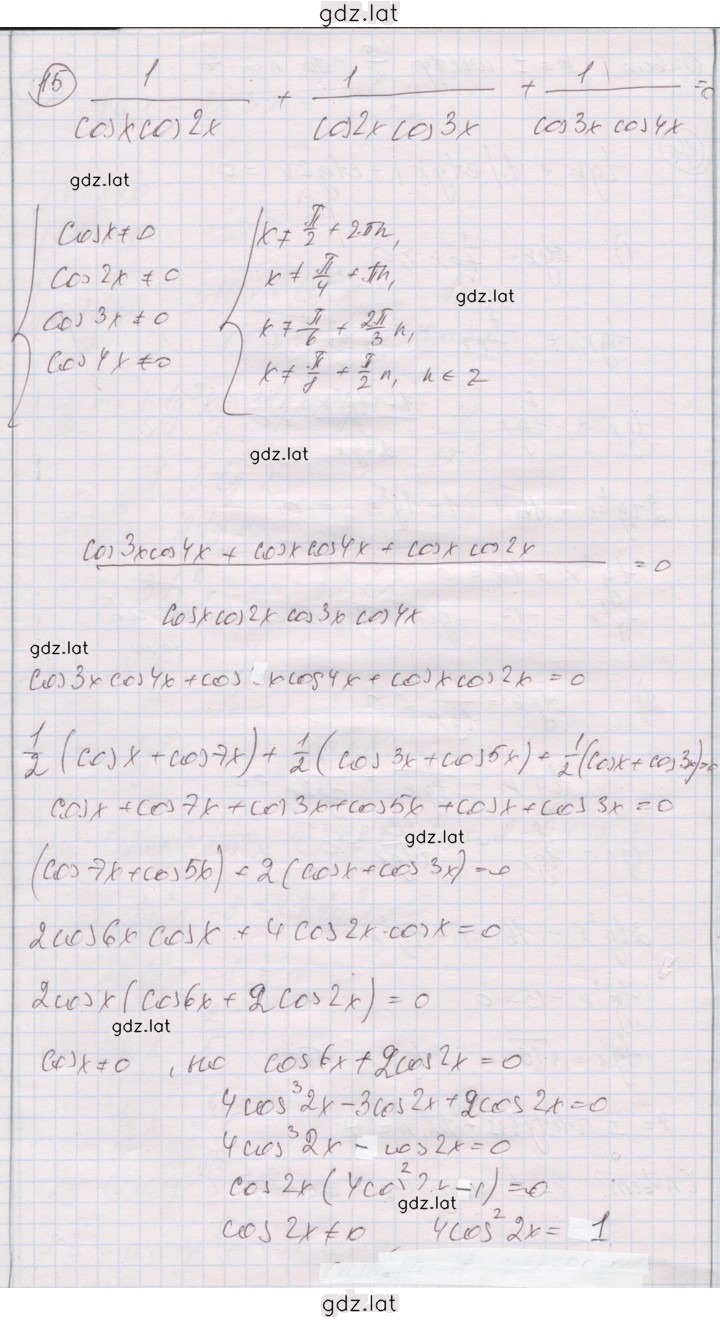 gdz.lat
15 1/(cosx cos2x) + 1/(cos2x cos3x) + 1/(cos3x cos4x) = 0
gdz.lat
cosx ≠ 0 x ≠ π/2 + 2πn,
cos2x ≠ 0 x ≠ π/4 + πn,
gdz.lat
cos3x ≠ 0 x ≠ π/6 + 2π/3 n,
cos4x ≠ 0 x ≠ π/8 + π/2 n, n ∈ Z
gdz.lat
(cos3x cos4x + cosx cos4x + cosx cos2x)/(cosx cos2x cos3x cos4x) = 0
gdz.lat
cos3x cos4x + cos x cos4x + cosx cos2x = 0
1/2 (cosx + cos7x) + 1/2 (cos3x + cos5x) + 1/2 (cosx + cos3x) = 0
cosx + cos7x + cos3x + cos5x + cosx + cos3x = 0
gdz.lat
(cos7x + cos5x) + 2(cosx + cos3x) = 0
2cos6x cosx + 4cos2x·cosx = 0
2cosx(cos6x + 2cos2x) = 0
gdz.lat
cosx ≠ 0, но cos6x + 2cos2x = 0
4cos³2x - 3cos2x + 2cos2x = 0
4cos³2x - cos2x = 0
cos2x(4cos²2x - 1) = 0
gdz.lat
cos2x ≠ 0 4cos²2x = 1
gdz.lat